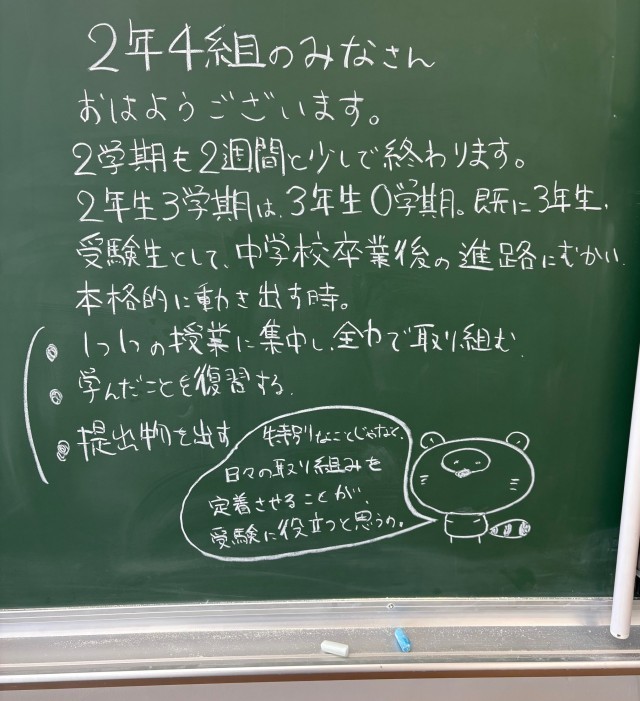 2年4組のみなさん
おはようございます。
2学期も2週間と少しで終わります。
2年生3学期は、3年生0学期。既に3年生、
受験生として、中学校卒業後の進路にむかい
本格的に動き出す時。
・1つ1つの授業に集中し、全力で取り組む、
・学んだことを復習する、
・提出物を出す
特別なことじゃなく、
日々の取り組みを
定着させることが、
受験に役立つと思うの。